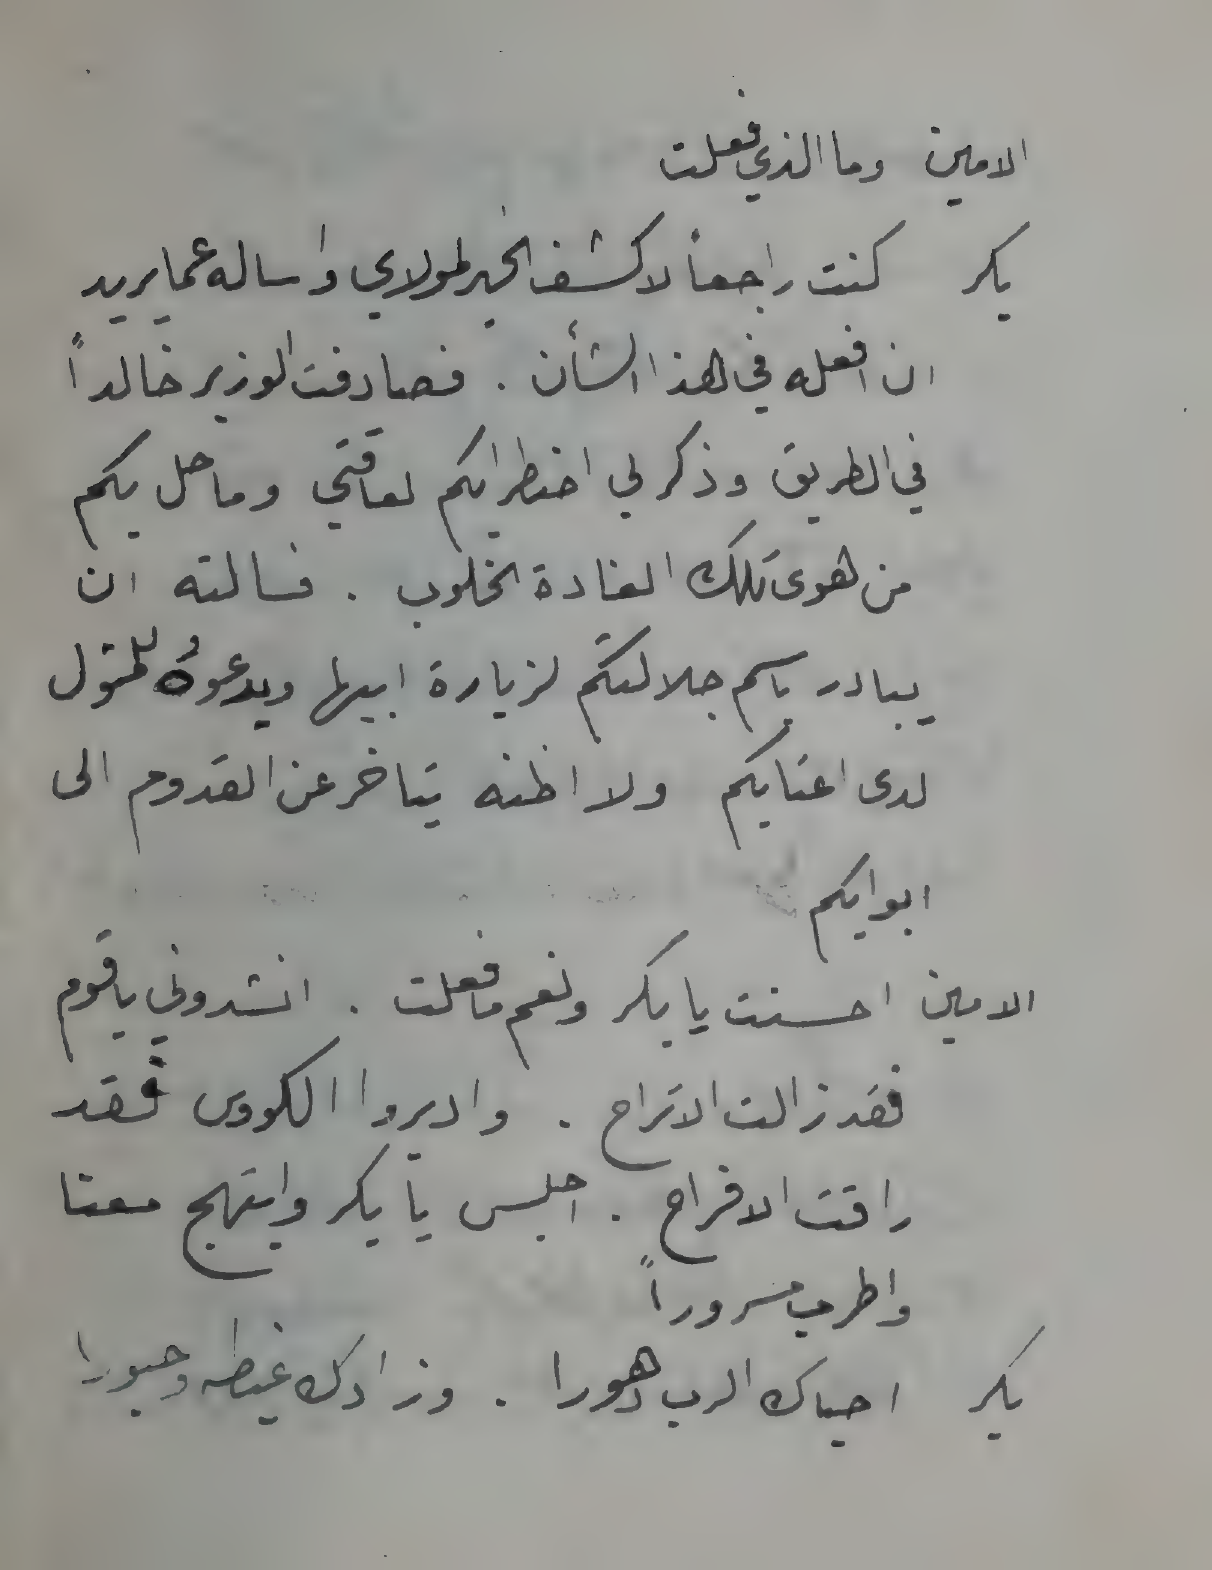 الامين وما الذي فعلت
بكر كنت راجعاً لاكشف الخبر لمولاي واساله عما يريد
ان افعله في هذا الشأن . فصادفت الوزير خالداً
في الطريق وذكر لي اضطرابكم لعاقتي وما حل بكم
من هوى تلك الغادة الخلوب . فسالته ان
يبادر باسم جلالتكم لزيارة ابيها ويدعوهُ للمثول
لدى اعتابكم ولا اظنه يتاخر عن القدوم الى
ابوابكم
الامين احسنت يا بكر ونعم ما فعلت . انشدوني يا قوم
فقد زالت الاتراح . واديروا الكووس فقد
راقت الافراح . اجلس يا بكر وابتهج معنا
واطرب مسروراً
بكر احياك الرب دهورا . وزادك غبطه وحبورا